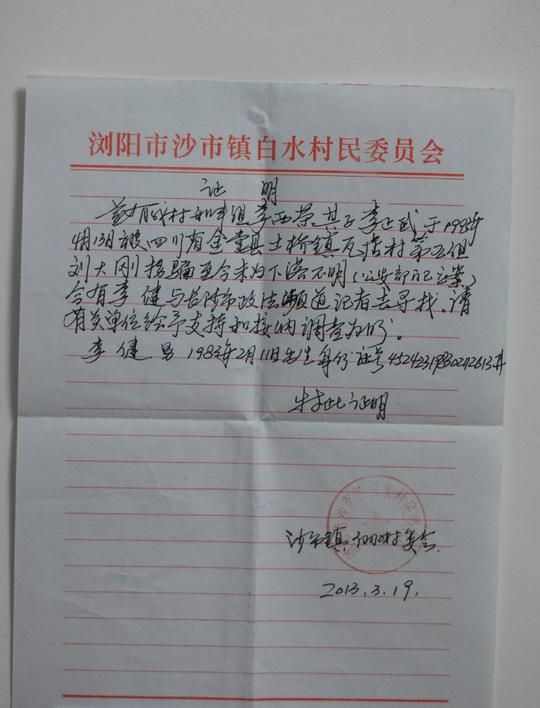 浏阳市沙市镇白水村民委员会
证 明
兹有我村和丰组李西荣其子李正武于1993年
4月13日被四川省金堂县土桥镇瓦店村第五组
刘大刚拐骗至今未为下落不明(公安部门已立案)
今有李健与长沙市政法频道记者去寻找。请
有关单位给予支持和接纳调查为盼。
李健 男 1983年2月11日出生 身份证号
特此证明
沙市镇白水村委会
2013.3.19.